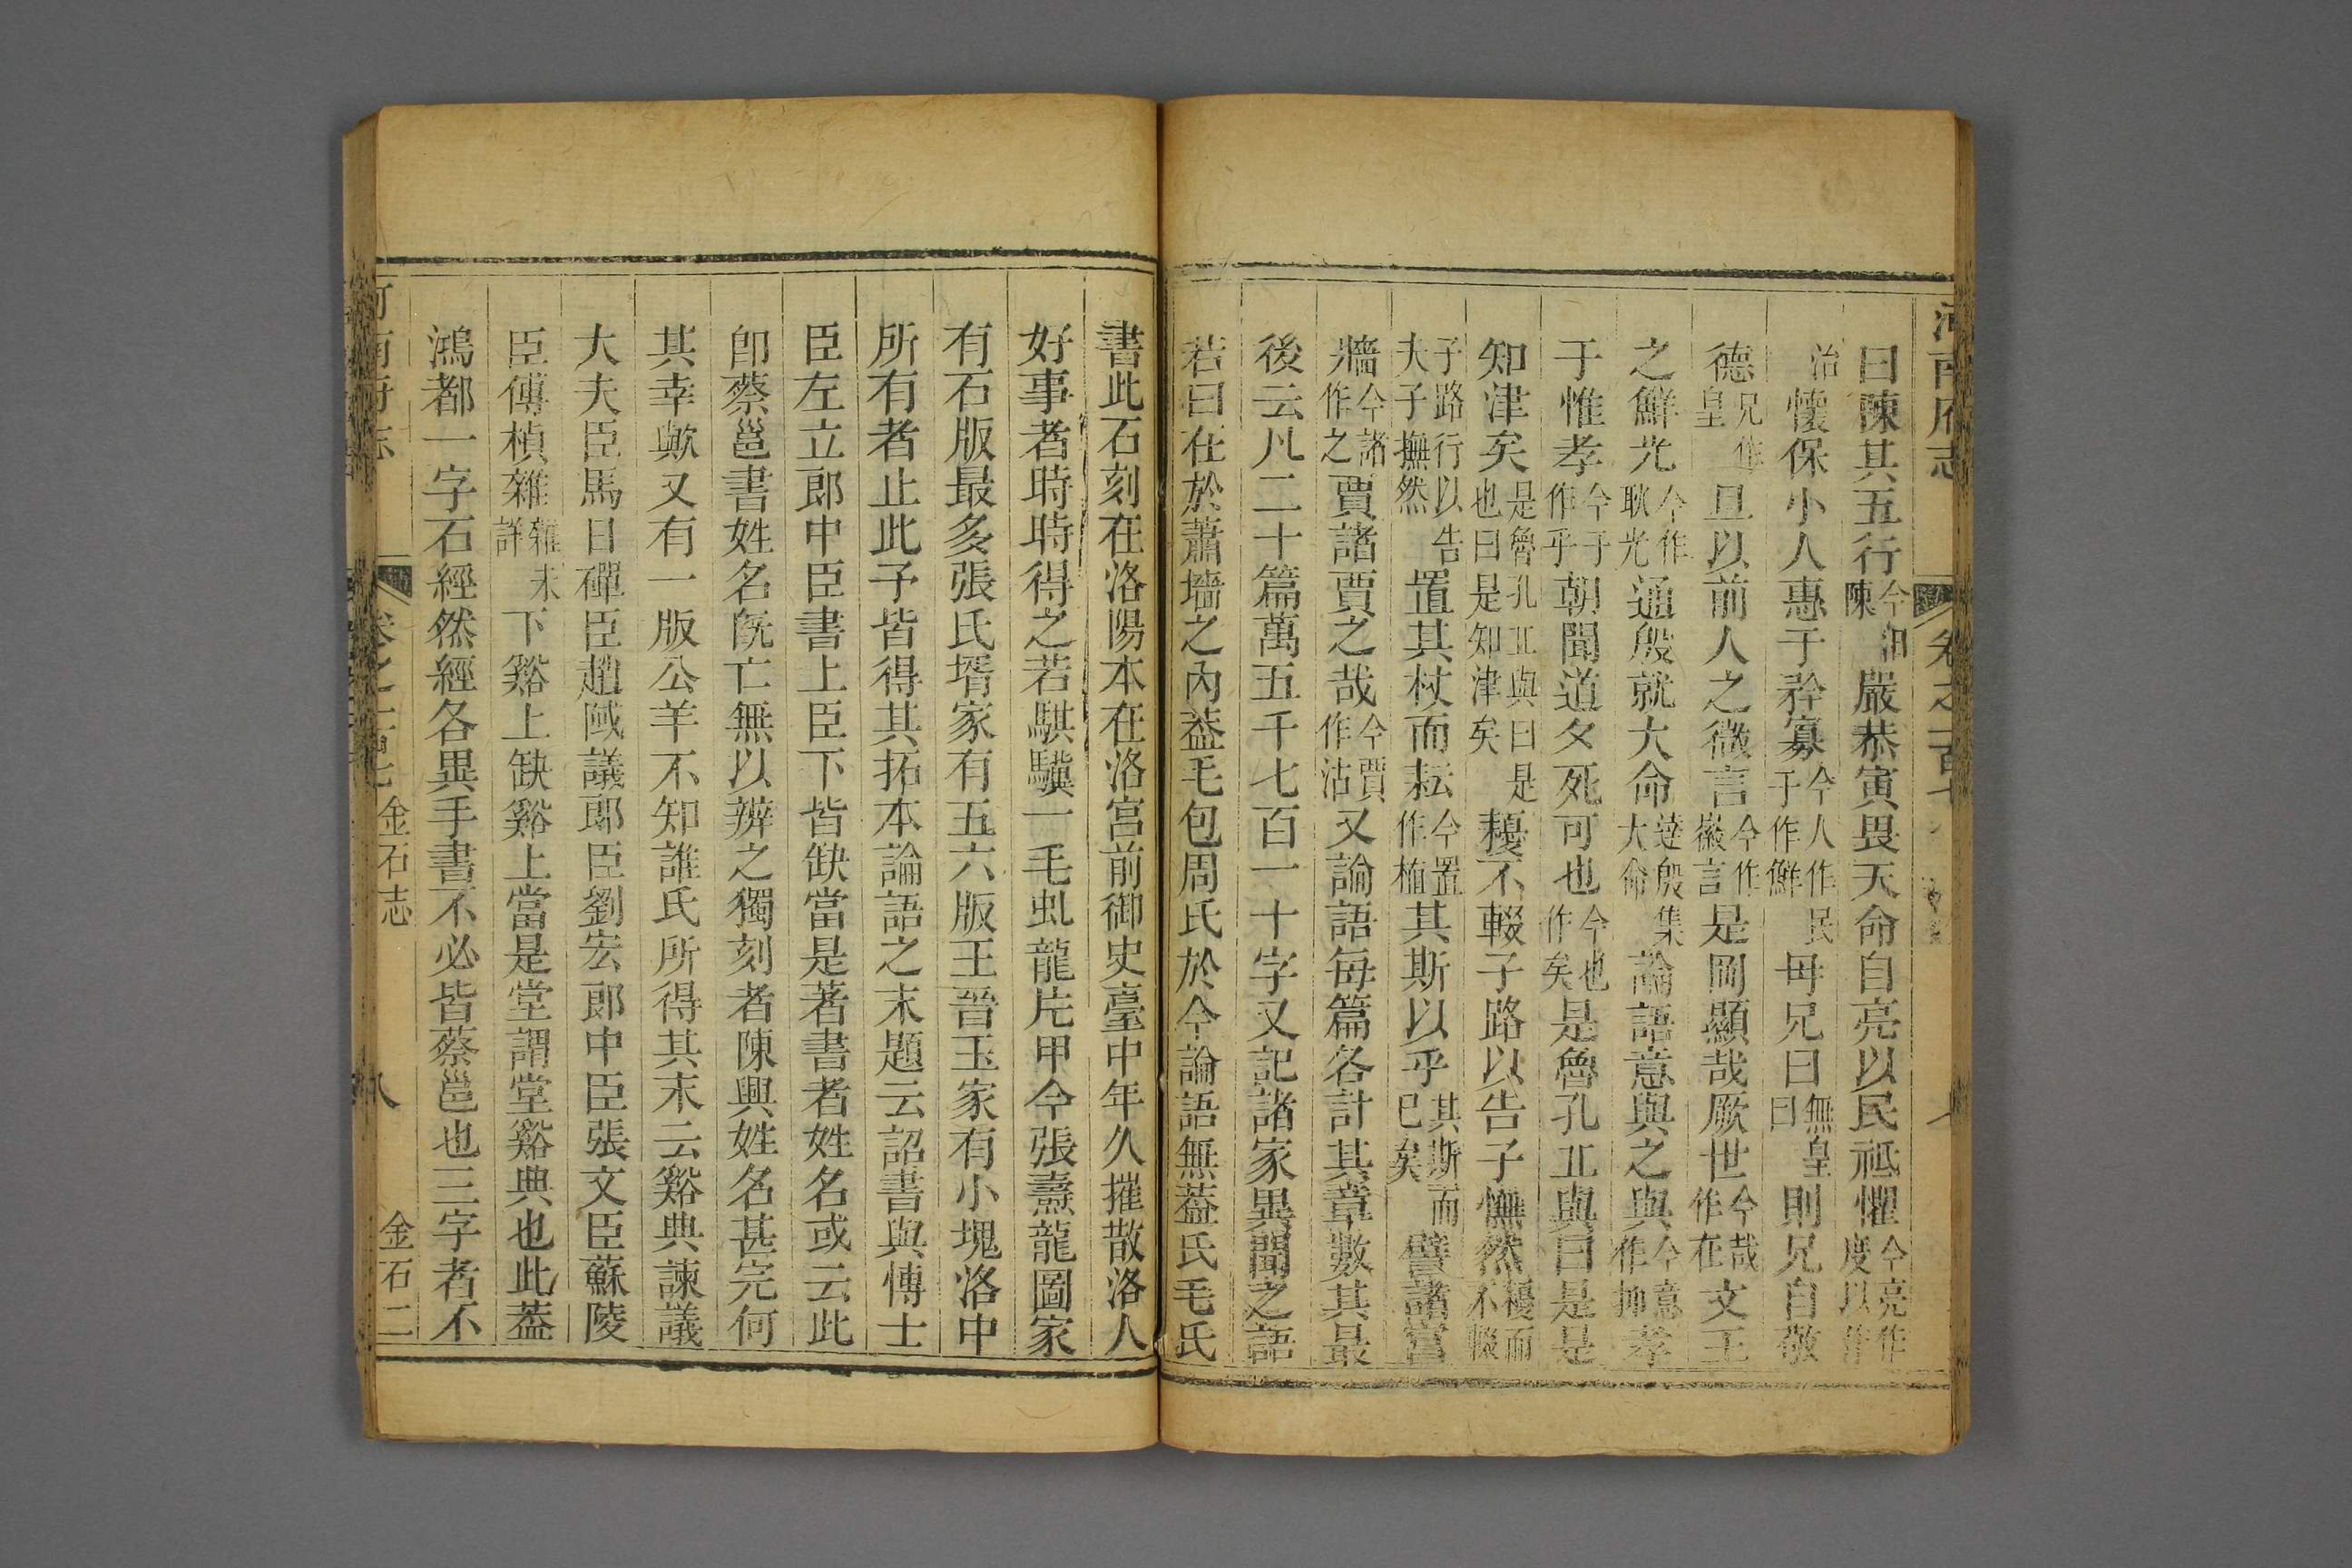 河南府志 卷之一百七
曰陳其五行今汨陳嚴恭寅畏天命自亮以民祗懼今亮作度以作
治懷保小人惠于矜寡今人作民于作鮮毋兄曰無皇曰則兄自敬
德兄作皇旦以前人之微言今作徽言是罔顯哉厥世今哉作在文王
之鮮光今作耿光通殷就大命達殷集大命論語意與之與今意作抑孝
于惟孝今于作乎朝聞道夕死可也今也作矣是魯孔丘與曰是是
知津矣是魯孔丘與曰是也曰是知津矣耰不輟子路以告子憮然耰而不輟
子路行以告夫子撫然置其杖而耘今置作植其斯以乎其斯而已矣譬諸宮
牆今諸作之賈諸賈之哉今賈作沽又論語每篇各計其章數其最
後云凡二十篇萬五千七百一十字又記諸家異聞之語
若曰在於蕭墻之內葢毛包周氏於今論語無葢氏毛氏
書此石刻在洛陽本在洛宮前御史臺中年久摧散洛人
好事者時時得之若騏驥一毛虬龍片甲今張燾龍圖家
有石版最多張氏壻家有五六版王晉玉家有小塊洛中
所有者止此予皆得其拓本論語之末題云詔書與博士
臣左立郎中臣書上臣下皆缺當是著書者姓名或云此
卽蔡邕書姓名旣亡無以辨之獨刻者陳興姓名甚完何
其幸歟又有一版公羊不知誰氏所得其末云谿典諫議
大夫臣馬日磾臣趙陘議郎臣劉宏郎中臣張文臣蘇陵
臣傅楨雜雜未詳下谿上缺谿上當是堂謂堂谿典也此葢
鴻都一字石經然經各異手書不必皆蔡邕也三字者不
河南府志 卷之一百七 金石志 八 金石二